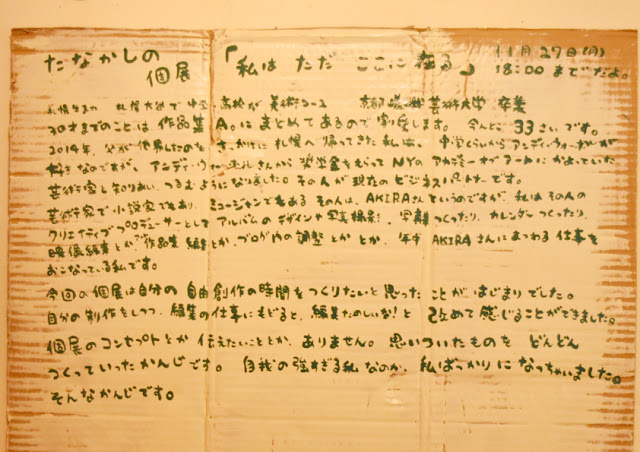 たなかしの
個展
「私は ただ ここに 在る」
11月27日(月)
18:00 までだよ。
札幌生まれ 札幌大谷で 中学、高校が 美術コース 京都嵯峨芸術大学 卒業
30才までのことは 作品集A。に まとめてあるので 割愛します。 今んとこ 33さいです。
2014年、父が他界したのを きっかけに 札幌へ 帰ってきた 私は、 中学くらいから アンディ・ウォーホルが
好きなのですが、アンディ・ウォーホルさんから 奨学金をもらって NYの アカデミーオブアートに かよっていた
芸術家と知りあい、つるむようになりました。その人が 現在の ビジネスパートナーです。
芸術家で 小説家でもあり、ミュージシャンでもある その人は、AKIRAさんというのですが、私は その人の
クリエイティブプロデューサーとして アルバムのデザインや 写真撮影、 つくったり、カレンダー つくったり、
映像編集とか 作品集 編集とか、ブログ内の 調整 とか とか、 年中 AKIRAさんに まつわる 仕事を
おこなっている 私です。
今回の 個展は 自分の 自由 創作の 時間を つくりたいと 思った ことが はじまり でした。
自分の 制作を しつつ、編集の 仕事に もどると、編集たのしいな! と 改めて 感じることが できました。
個展の コンセプトとか 伝えたいこととか、 ありません。 思いついたものを どんどん
つくっていった かんじです。 自我の 強すぎる 私 なのか、 私ばっかりに なっちゃいました。
そんな かんじです。